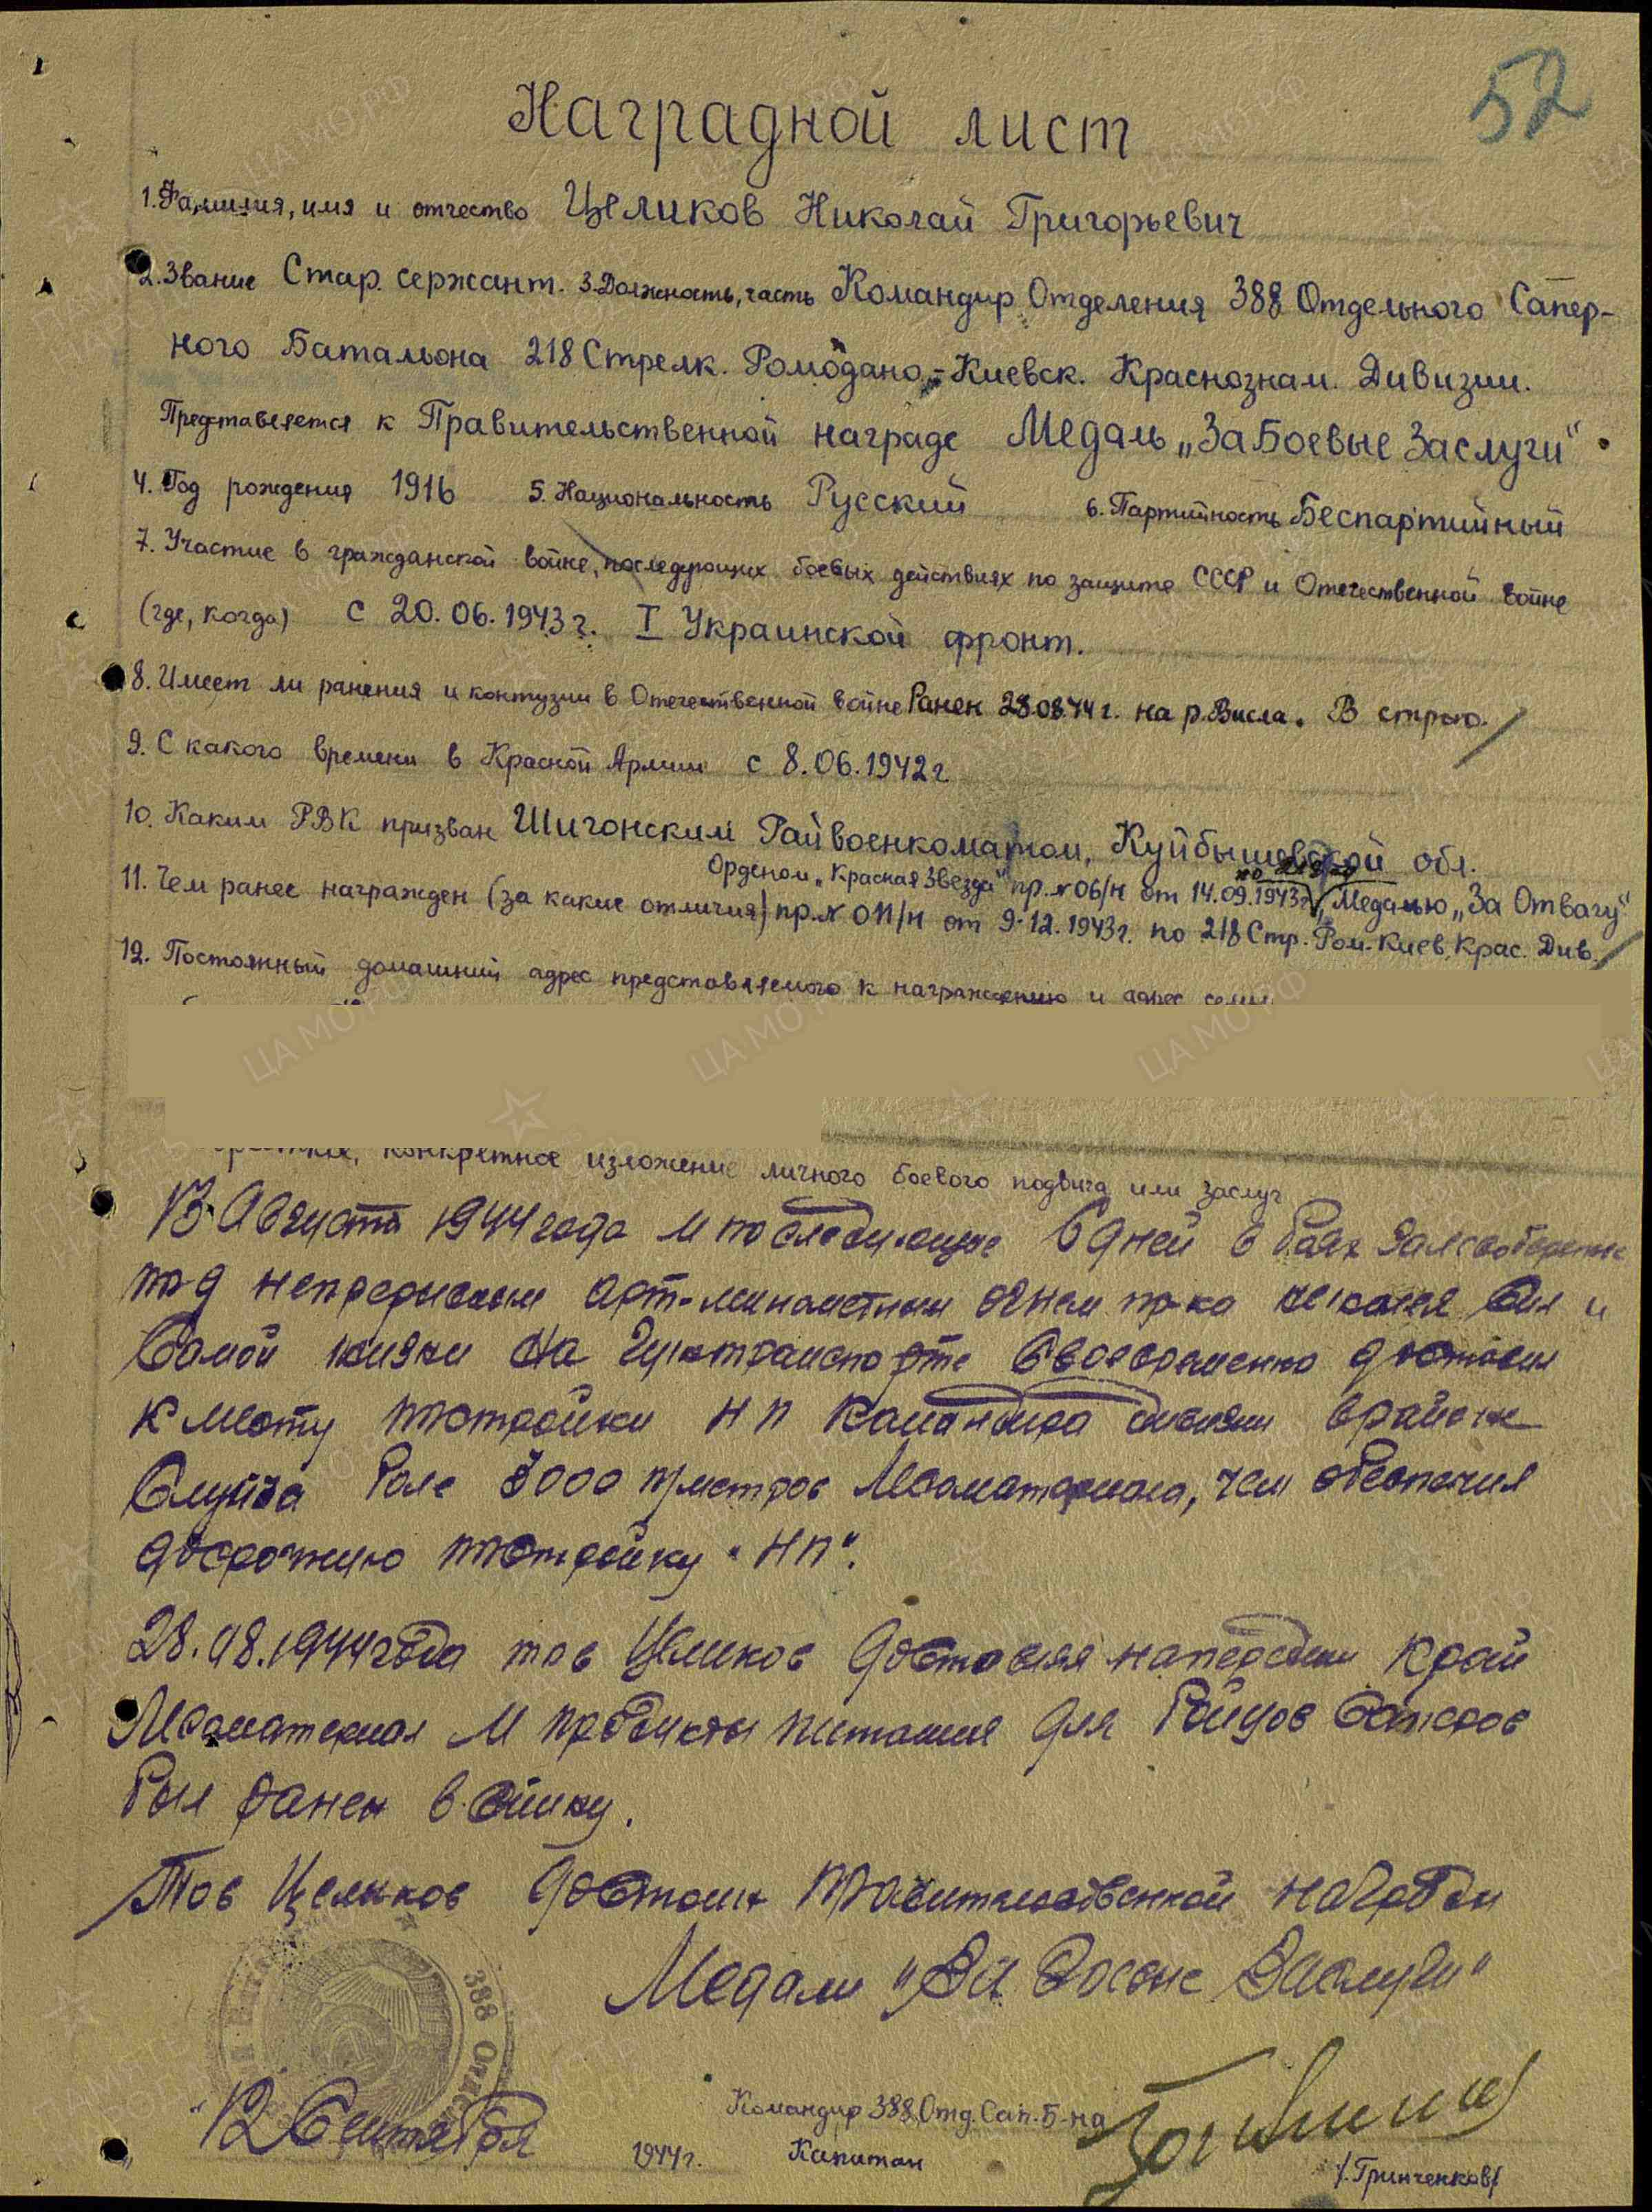 52
Наградной лист
1. Фамилия, имя и отчество Целиков Николай Григорьевич
2. Звание Стар. сержант. 3. Должность, часть Командир Отделения 388 Отдельного Сапер-
ного Батальона 218 Стрелк. Ромодано-Киевск. Краснознам. Дивизии.
Представляется к Правительственной награде Медаль „За Боевые Заслуги"
4. Год рождения 1916 5. Национальность Русский 6. Партийность Беспартийный
7. Участие в гражданской войне, последующих боевых действиях по защите СССР и Отечественной войне
(где, когда) с 20.06.1943 г. I Украинской фронт.
8. Имеет ли ранения и контузии в Отечественной войне Ранен 28.08.44 г. на р. Висла. В строю.
9. С какого времени в Красной Армии с 8.06.1942 г
10. Каким РВК призван Шигонским Райвоенкоматом, Куйбышевской обл.
Орденом „Красная Звезда" пр. № 06/н от 14.09.1943 г., Медалью „За Отвагу"
11. Чем ранее награжден (за какие отличия) пр. № 011/н от 9.12.1943 г. по 218 Стр. Ром. Киев. Крас. Див.
12. Постоянный домашний адрес представляемого к награждению и адрес семьи
конкретное изложение личного боевого подвига или заслуг
13 Августа 1944 года и последующие 6 дней в боях
под непрерывным арт-минометным огнем пр-ка не жалея сил и
самой жизни на Гужтранспорте своевременно доставил
к месту постройки НП командира дивизии в районе
более 3000 п/метров Лесоматериала, чем обеспечил
досрочную постройку "НП".
28.08.1944 года тов Целиков доставляя на передний край
Лесоматериал и продукты питания для бойцов саперов
был ранен в спину.
Тов Целиков достоин правительственной награды
Медали "За Боевые Заслуги"
388 Отд
12 Сентября 1944 г.
Командир 388 Отд. Сап. Б-на
Капитан
/Гринченков/
ЦА МО РФ